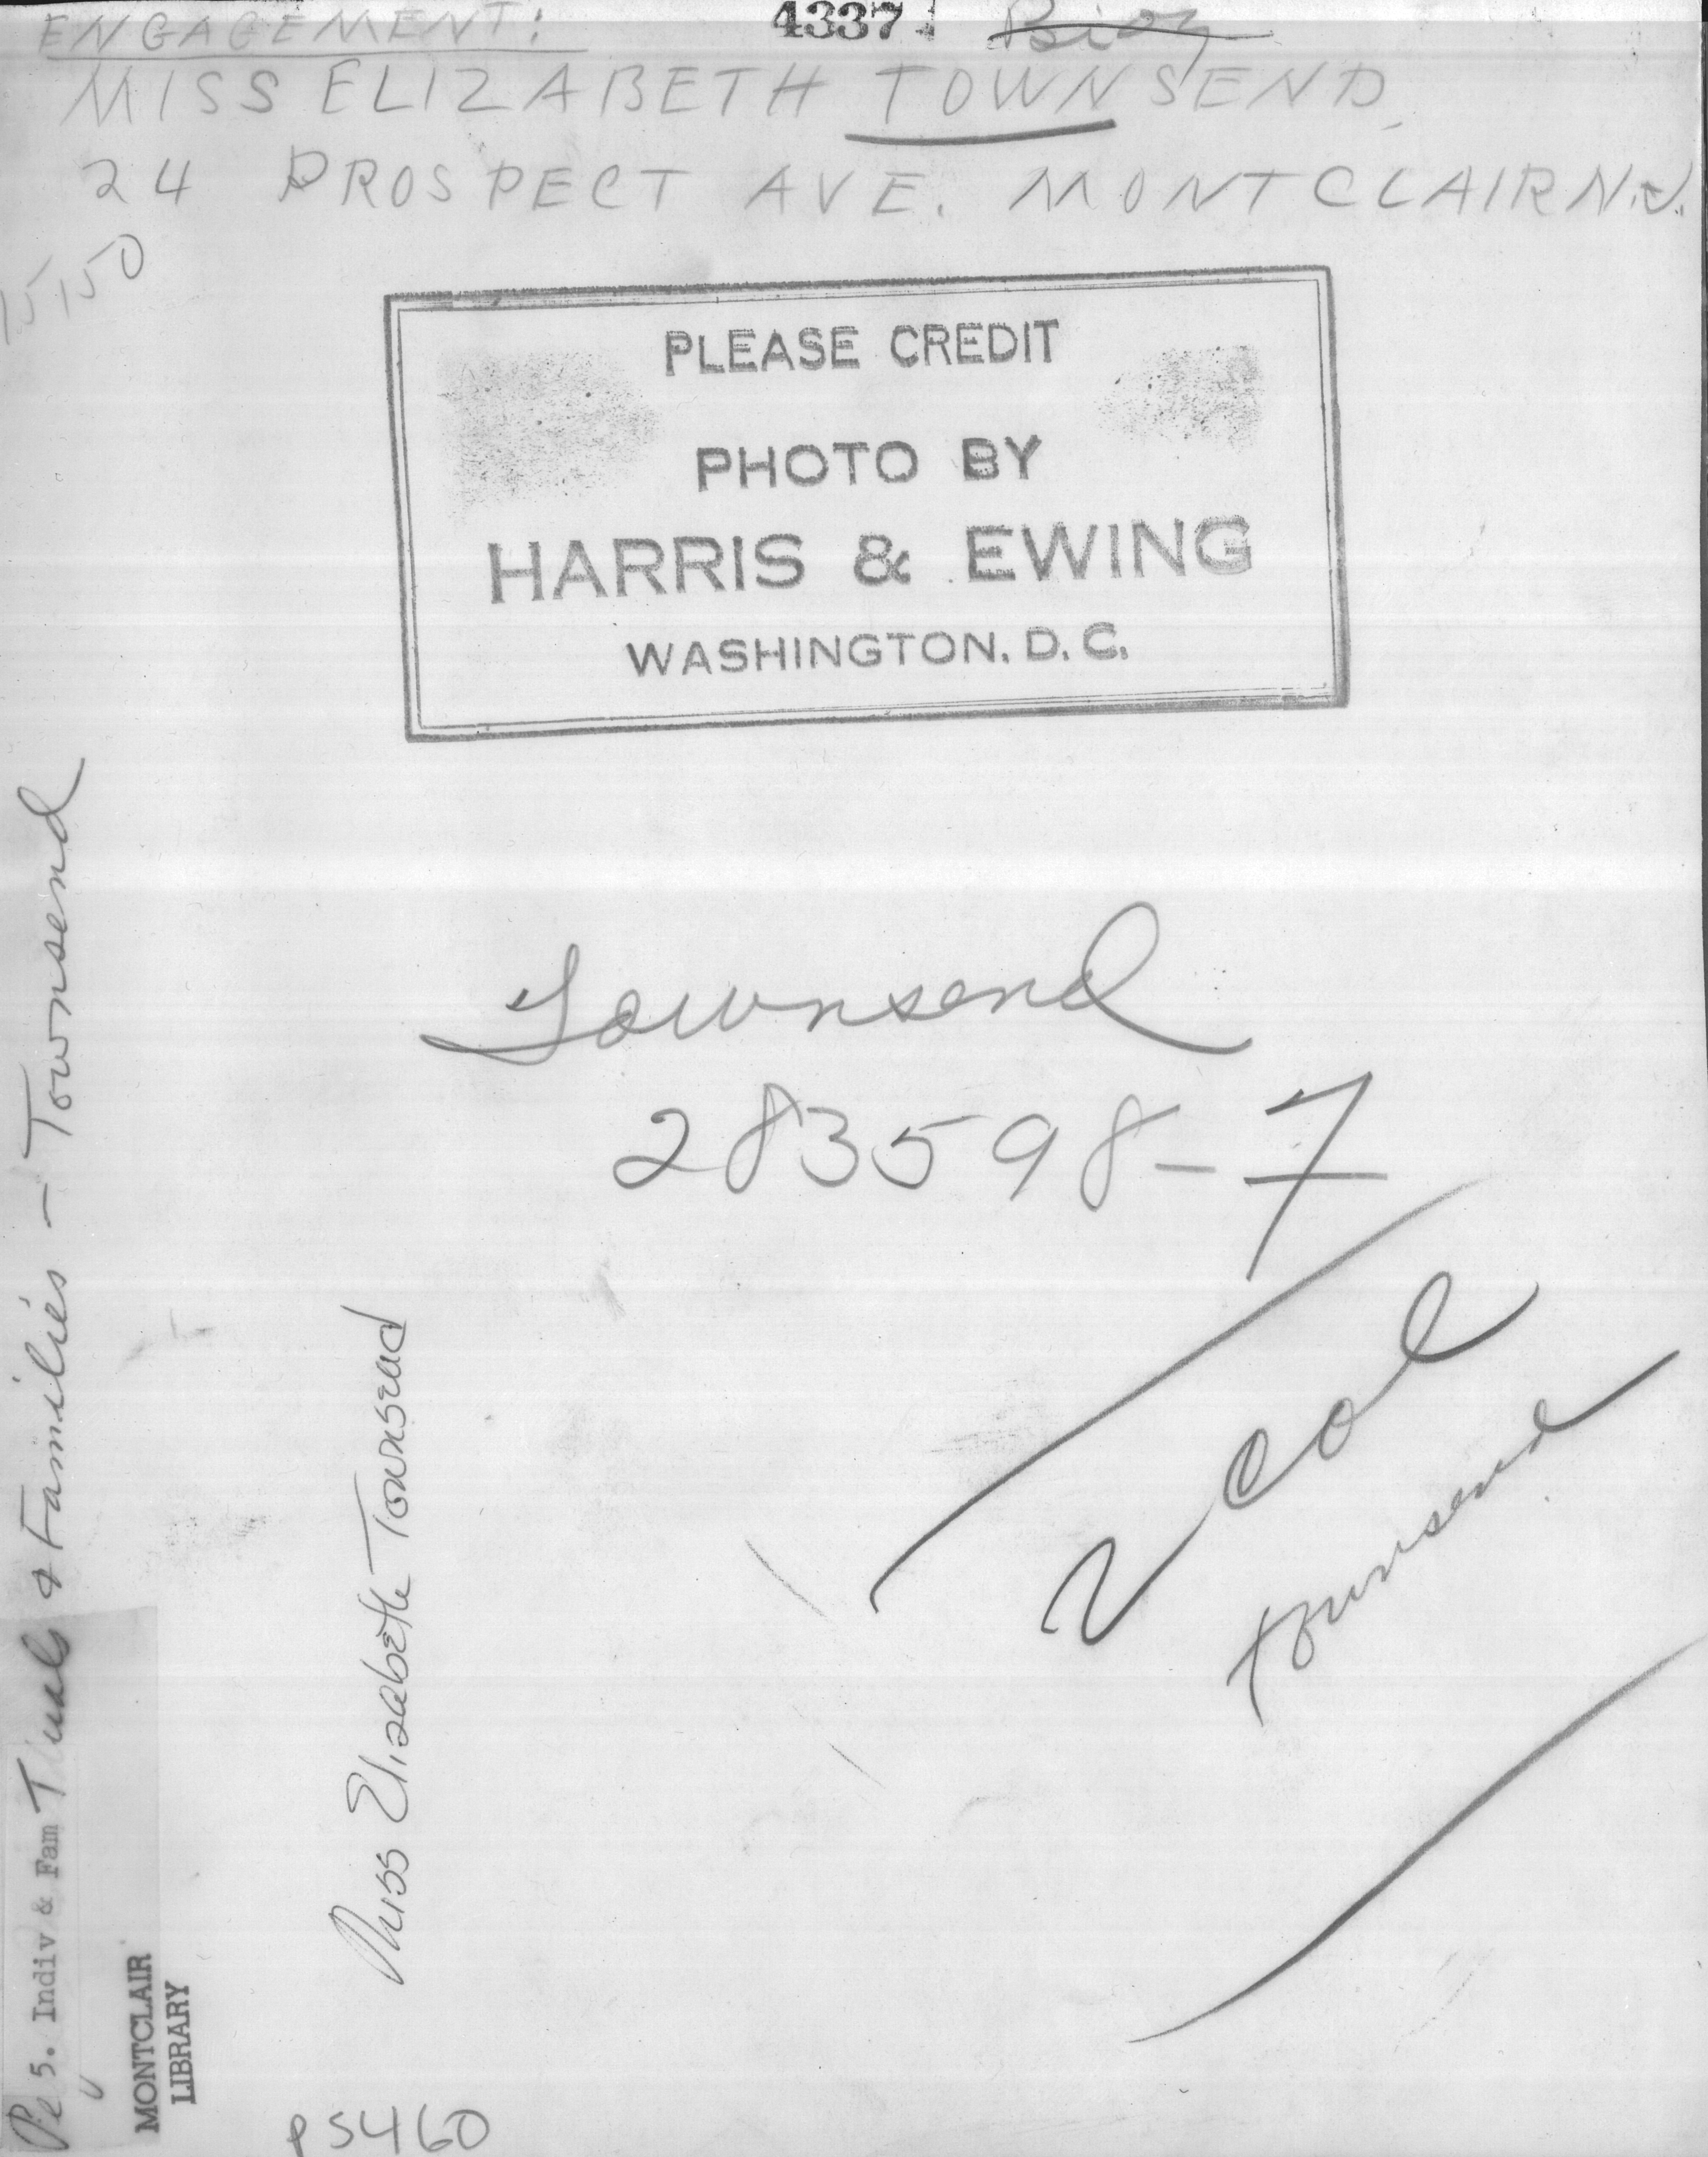 4337
ENGAGEMENT:
MISS ELIZABETH TOWNSEND
24 PROSPECT AVE. MONTCLAIR N.J.
PLEASE CREDIT
PHOTO BY
HARRIS & EWING
WASHINGTON, D. C.
Townsend
283598-7
2 col
townsend
Miss Elizabeth Townsend
& Families - Townsend
5. Indiv & Fam
MONTCLAIR
LIBRARY
P5460